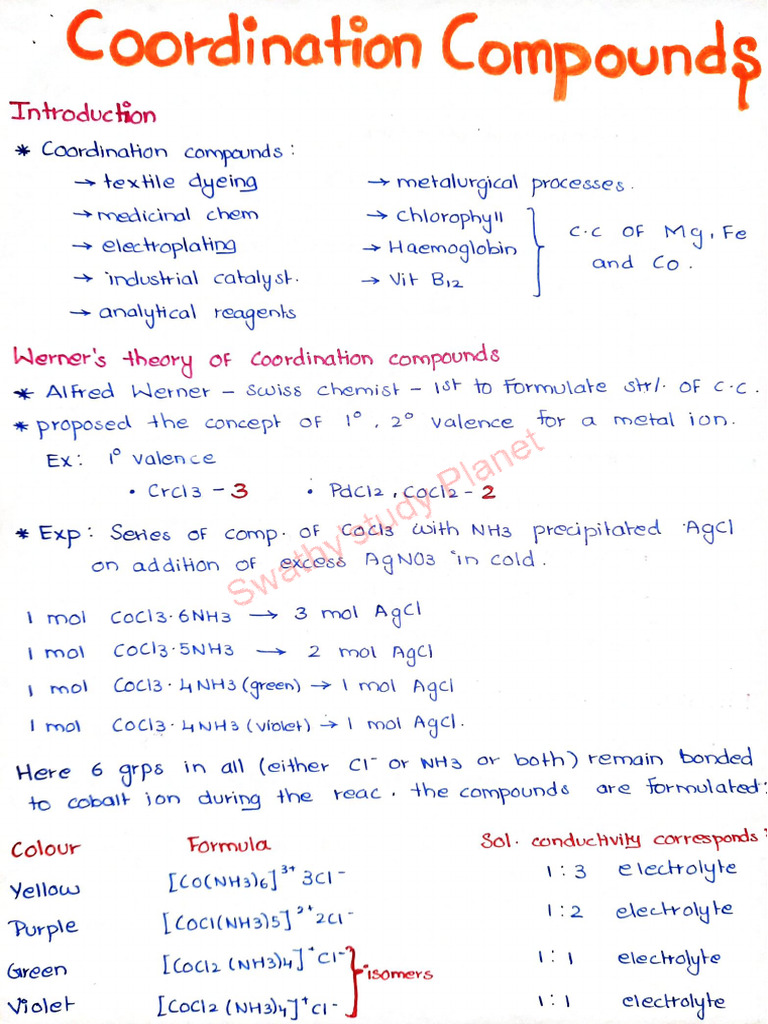 Coordination Compounds
Introduction
* Coordination compounds:
→ textile dyeing → metalurgical processes.
→ medicinal chem → Chlorophyll
→ electroplating → Haemoglobin
→ industrial catalyst. → Vit B12
→ analytical reagents
C.C OF Mg, Fe
and Co.
Werner's theory of Coordination compounds
* Alfred Werner - Swiss chemist - 1st to formulate str/. of C.C.
* proposed the concept of 1°, 2° valence for a metal ion.
Ex: 1° valence
• CrCl3 - 3 • PdCl2, CoCl2 - 2
* Exp: Series of comp. of CoCl3 with NH3 precipitated AgCl
on addition of excess AgNO3 in cold.
1 mol CoCl3·6NH3 → 3 mol AgCl
1 mol CoCl3·5NH3 → 2 mol AgCl
1 mol CoCl3·4NH3 (green) → 1 mol AgCl
1 mol CoCl3·4NH3 (violet) → 1 mol AgCl.
Here 6 grps in all (either Cl⁻ or NH3 or both) remain bonded
to cobalt ion during the reac. the compounds are formulated:
Colour Formula Sol. conductivity corresponds:
Yellow [Co(NH3)6]³⁺ 3Cl⁻ 1:3 electrolyte
Purple [CoCl(NH3)5]²⁺2Cl⁻ 1:2 electrolyte
Green [CoCl2(NH3)4]⁺Cl⁻ 1:1 electrolyte
isomers
Violet [CoCl2(NH3)4]⁺Cl⁻ 1:1 electrolyte
Swathy'study Planet